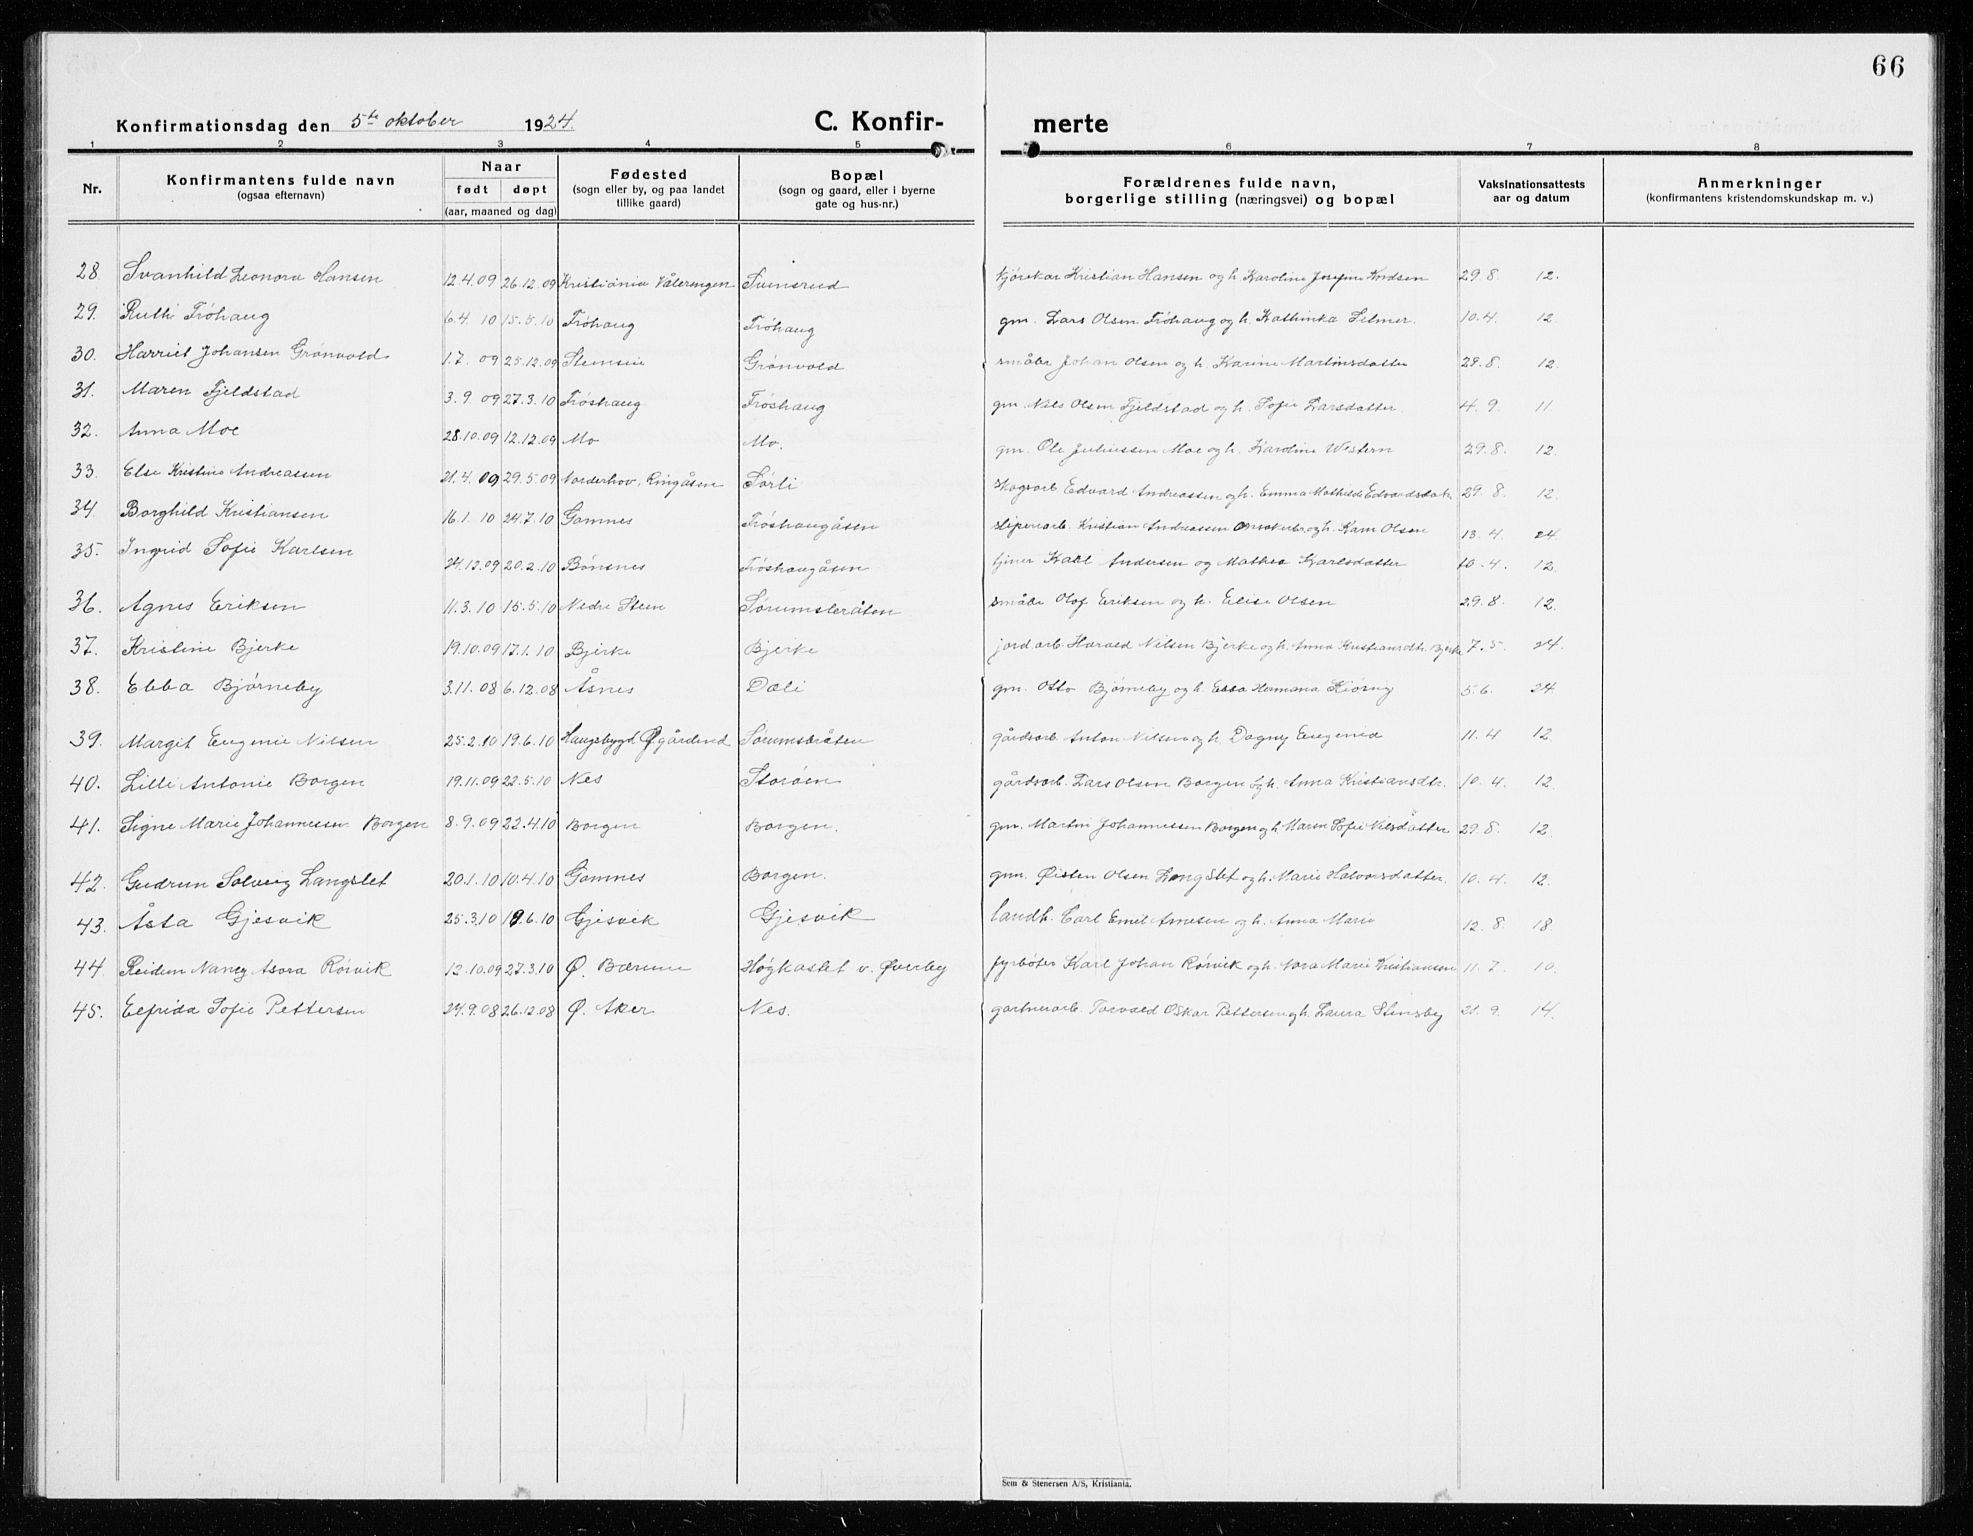 66
Konfirmationsdag den 5te oktober 1924. C. Konfirmerte
1 2 3 4 5 6 7 8
Nr. | Konfirmantens fulde navn (ogsaa efternavn) | Naar født døpt (aar, maaned og dag) | Fødested (sogn eller by, og paa landet tillike gaard) | Bopæl (sogn og gaard, eller i byerne gate og hus-nr.) | Forældrenes fulde navn, borgerlige stilling (næringsvei) og bopæl | Vaksinationsattests aar og datum | Anmerkninger (konfirmantens kristendomskundskap m. v.)
28. Svanhild Leonora Hansen 12.4.09 26.12.09 Kristiania Vålerengen Svinsrud kjørekar Kristian Hansen og h. Karoline Josefine Knudsen 29.8. 12.
29. Ruth Frøhaug 6.4.10 15.5.10 Frøhaug Frøhaug gm. Lars Olsen Frøhaug og h. Kathinka Selmer. 10.4. 12.
30. Harriet Johansen Grønvold 1.7.09 25.12.09 Grønvold småbr. Johan Olsen og h. Karine Martinsdatter 29.8. 12.
31. Maren Fjeldstad 3.9.09 27.3.10 Frøshaug Frøshaug gm. Nils Olsen Fjeldstad og h. Sofie Larsdatter. 4.9. 11.
32. Anna Moe 28.10.09 12.12.09 Mo Mo. gm. Ole Juliussen Moe og h. Karoline Western 29.8. 12.
33. Else Kristine Andreassen 21.4.09 29.5.09 Norderhov, Ringåsen Sørli skogsarb. Edvard Andreassen og h. Emma Mathilde Edvardsdatr. 29.8. 12.
34. Borghild Kristiansen 16.1.10 24.7.10 Gomnes Frøshaugåsen sliperiarb. Kristian Andreassen og h. Karn Olsen 13.4. 24.
35. Ingrid Sofie Karlsen 24.12.09 20.2.10 Bønsnes Frøshaugåsen tjener Karl Andersen og Mathea Karlsdatter 10.4. 12.
36. Agnes Eriksen 11.3.10 15.5.10 Nedre Steen Sørumsbråten småbr. Olof Eriksen og h. Elise Olsen 29.8. 12.
37. Kristine Bjerke 19.10.09 17.1.10 Bjerke Bjerke jordarb. Harald Nilsen Bjerke og h. Anna Kristiansdtr. Bjerke 7.5. 24.
38. Ebba Bjørneby 3.11.08 6.12.08 Åsnes Dæli gm. Otto Bjørneby og h. Ebba Hermana Kiønig 5.6. 24.
39. Margit Eugenie Nilsen 25.2.10 19.6.10 Haugsbygd Øgårdend Sørumsbråten gårdsarb. Anton Nilsen og h. Dagny Eugenia 11.4 12
40. Lilli Antonie Borgen 19.11.09 22.5.10 Nes Storøen gårdsarb. Lars Olsen Borgen og h. Anna Kristiansdtr. 10.4. 12.
41. Signe Marie Johannessen Borgen 8.9.09 22.4.10 Borgen Borgen. gm. Martin Johannessen Borgen og h Maren Sofie Nilsdatter 29.8. 12.
42. Gudrun Solveig Langslet 20.1.10 10.4.10 Gomnes Borgen. gm. Øisten Olsen Langslet og h. Marie Halvorsdatter. 10.4. 12.
43. Åsta Gjesvik 25.3.10 19.6.10 Gjesvik Gjesvik landh. Carl Emil Arnesen og h. Anna Marie 12.8. 18.
44. Reidun Nancy Asora Rørvik 12.10.09 27.3.10 Ø. Bærum Høgkastet v. Øverby fyrbøter Karl Johan Rørvik og h. Nora Marie Kristiansen 11.7. 10.
45. Elfrida Sofie Pettersen 24.9.08 26.12.08 Ø. Aker Nes. gartnerarb. Torvald Oskar Pettersen og h. Laura Stensby 21.9. 14.
Sem & Stenersen A/S, Kristiania.